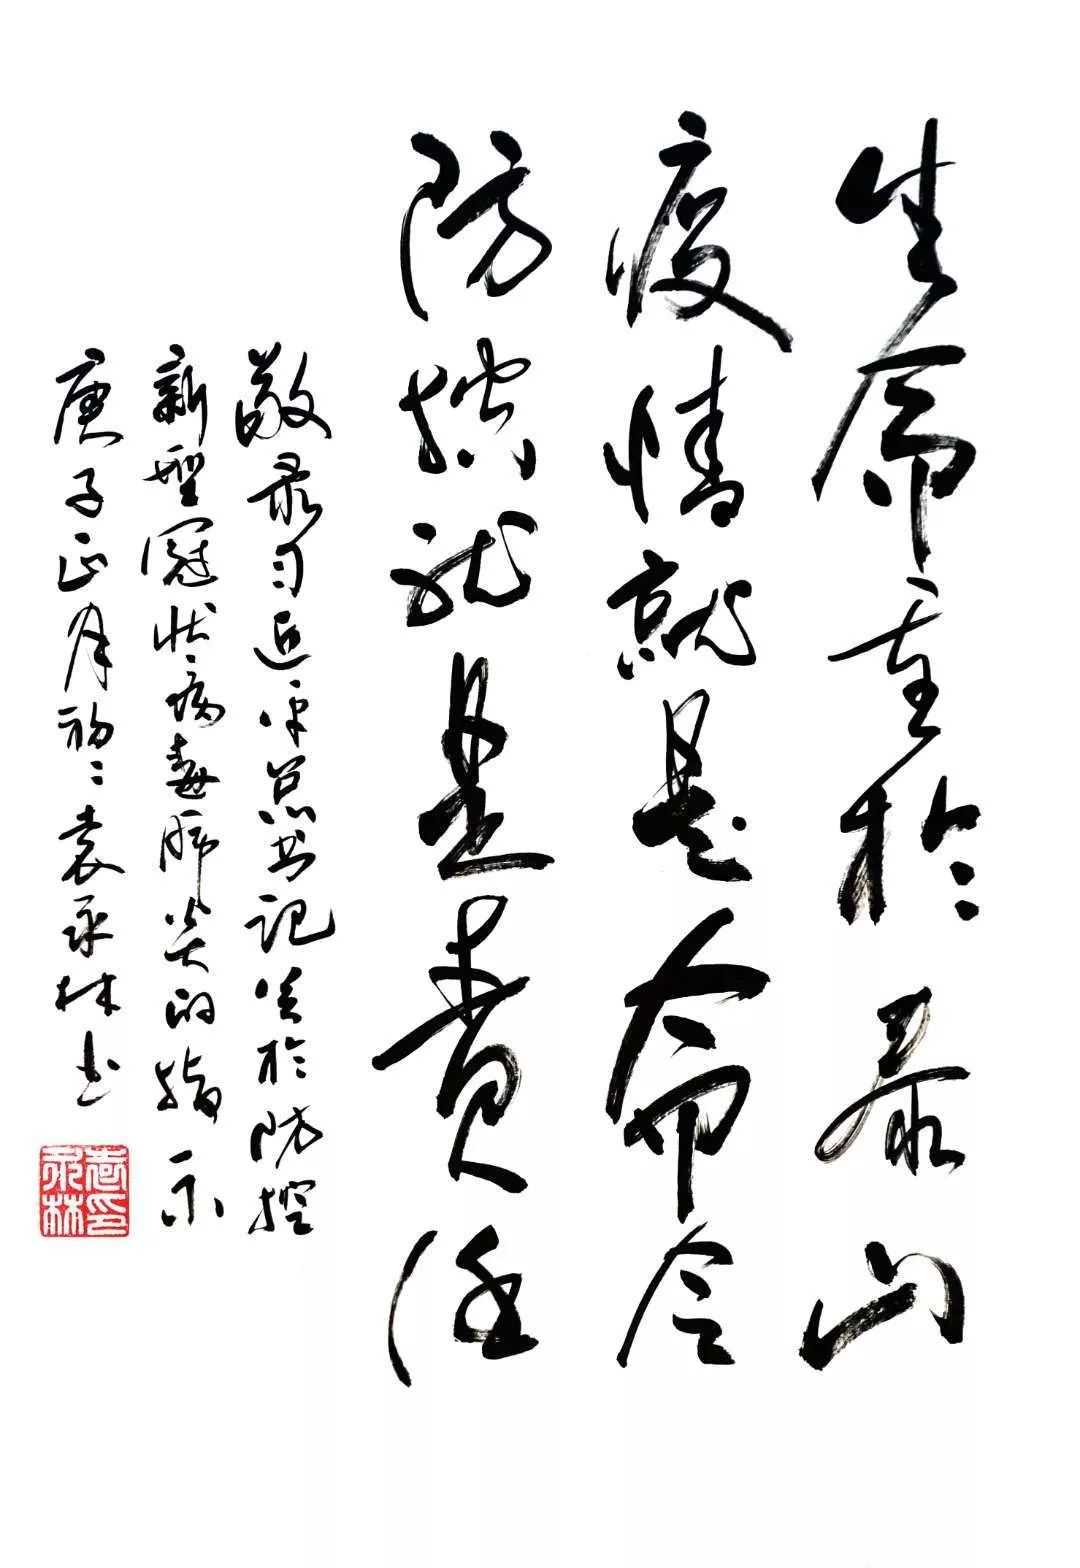 生命重於泰山
疫情就是命令
防控就是责任
敬录习近平总书记关於防控
新型冠状病毒肺炎的指示
庚子正月初二袁永林书
袁永林印